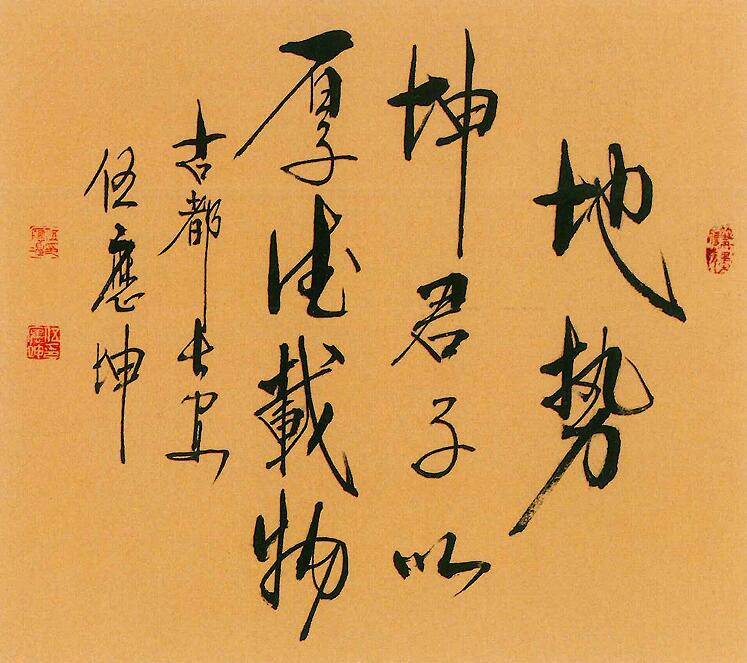 地勢
坤君子以
厚德載物
古都长安
伍應坤